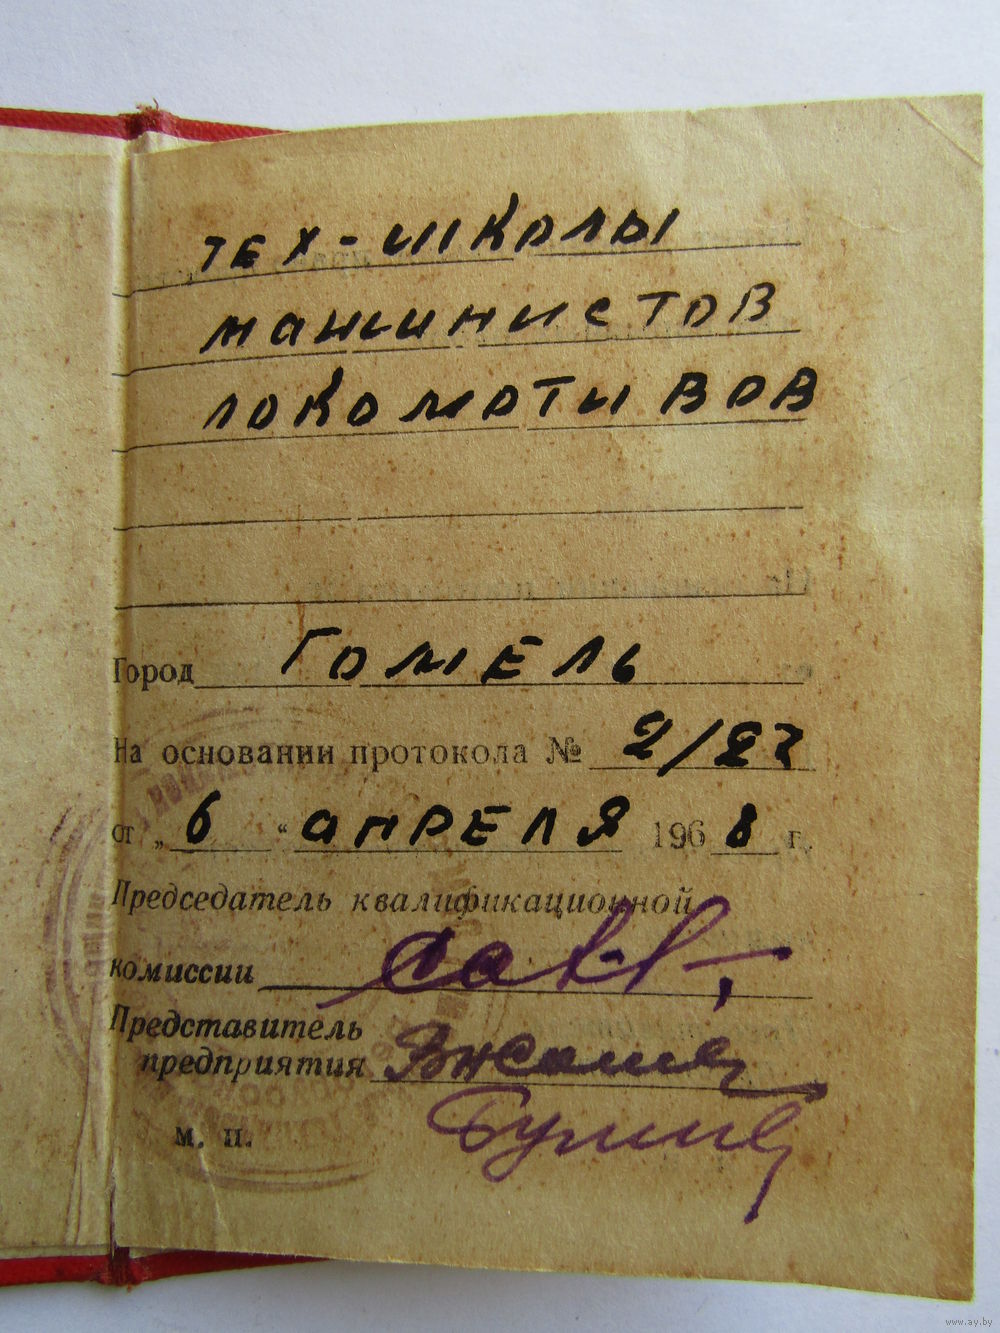 тех-школы
машинистов
локомотивов
Город Гомель
На основании протокола № 2/27
от „ 6 “ апреля 1968 г.
Председатель квалификационной
комиссии
Представитель
предприятия
м. п.
www.ay.by